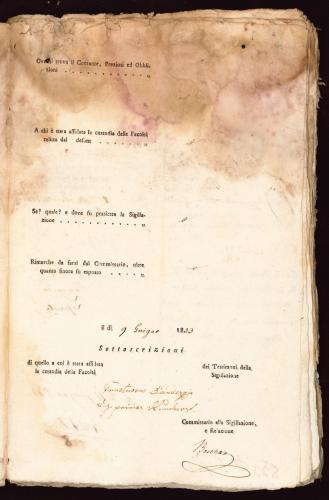 Ove si trova il Contante, Preziosi ed Obbli-
zioni . . . . . . . . . . "
A chi è stata affidata la custodia delle Facoltà
relitta dal defunto . . . . . . "
Se? quale? e dove fu praticata la Sigilla-
zione . . . . . . . . . . "
Rimarche da farsi dal Commissario, oltre
quanto finora fu esposto . . . . . "
il dì 9 Giugno 1833
Sottoscrizioni
di quello a cui è stata affidata
la custodia della Facoltà
dei Testimoni della
Sigillazione
Commissario alla Sigillazione,
e Relazione